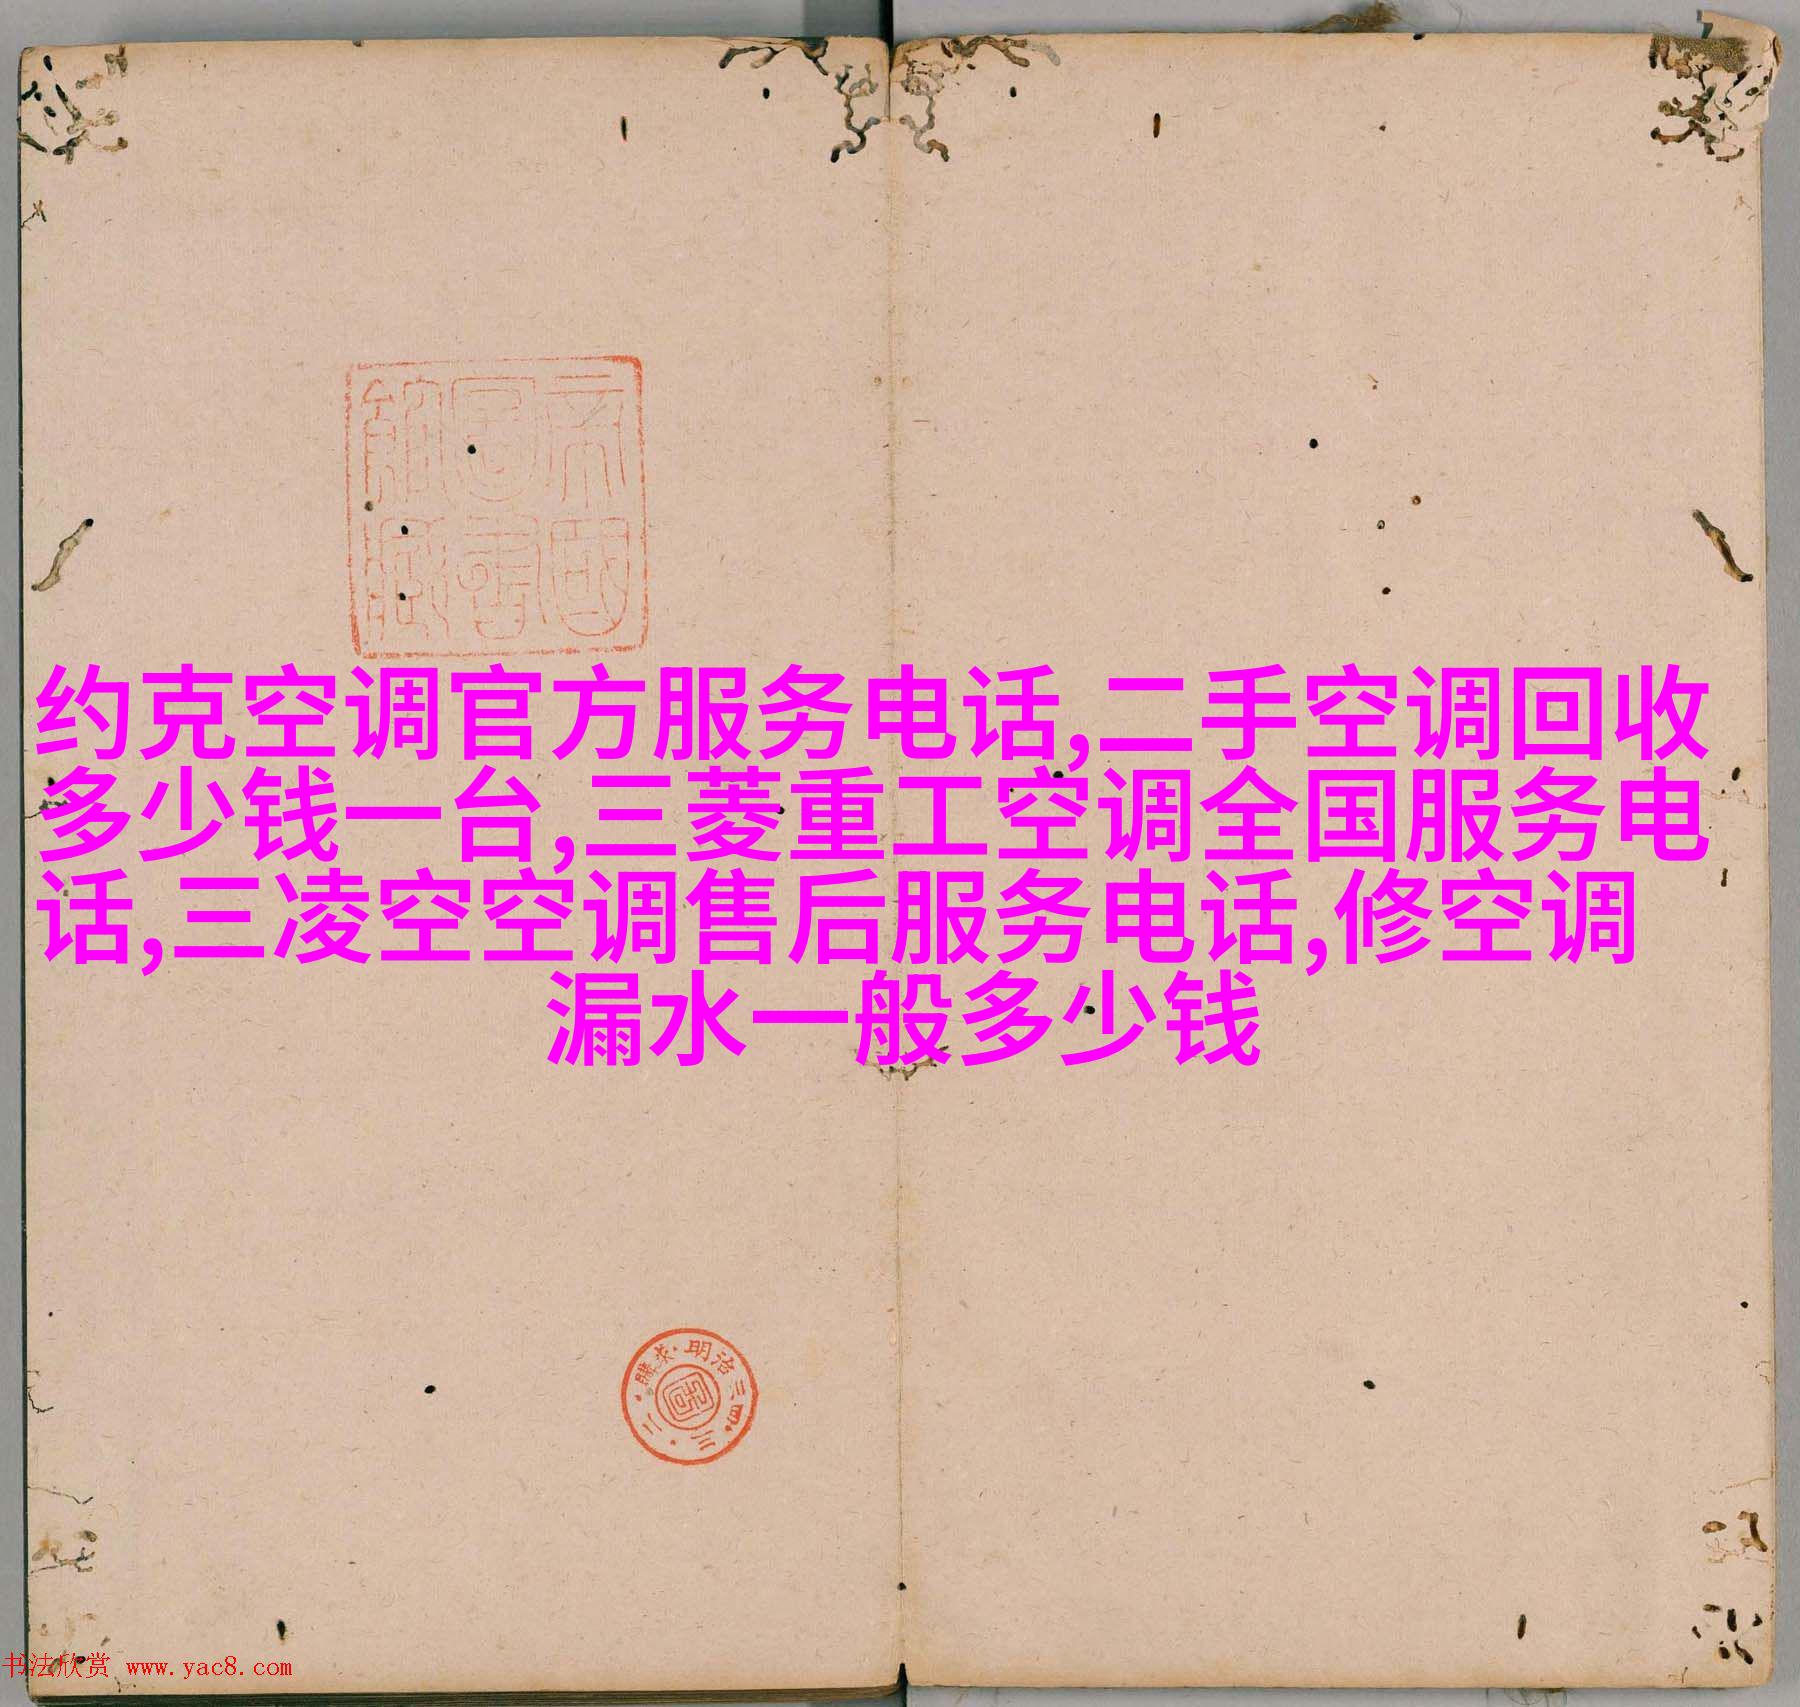 帝國
圖書
館藏
约克空调官方服务电话,二手空调回收
多少钱一台,三菱重工空调全国服务电
话,三凌空空调售后服务电话,修空调
漏水一般多少钱
明治三四・三・二・購求・
书法欣赏 www.yac8.com